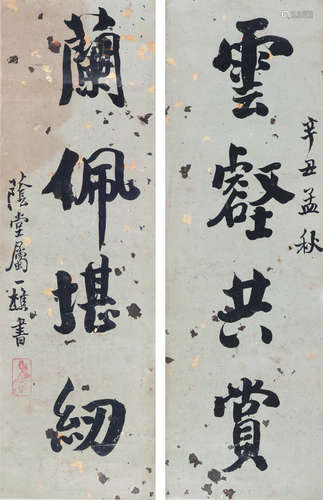 辛丑孟秋
雲壑共賞
蘭佩堪紉
蔭堂屬一樵書